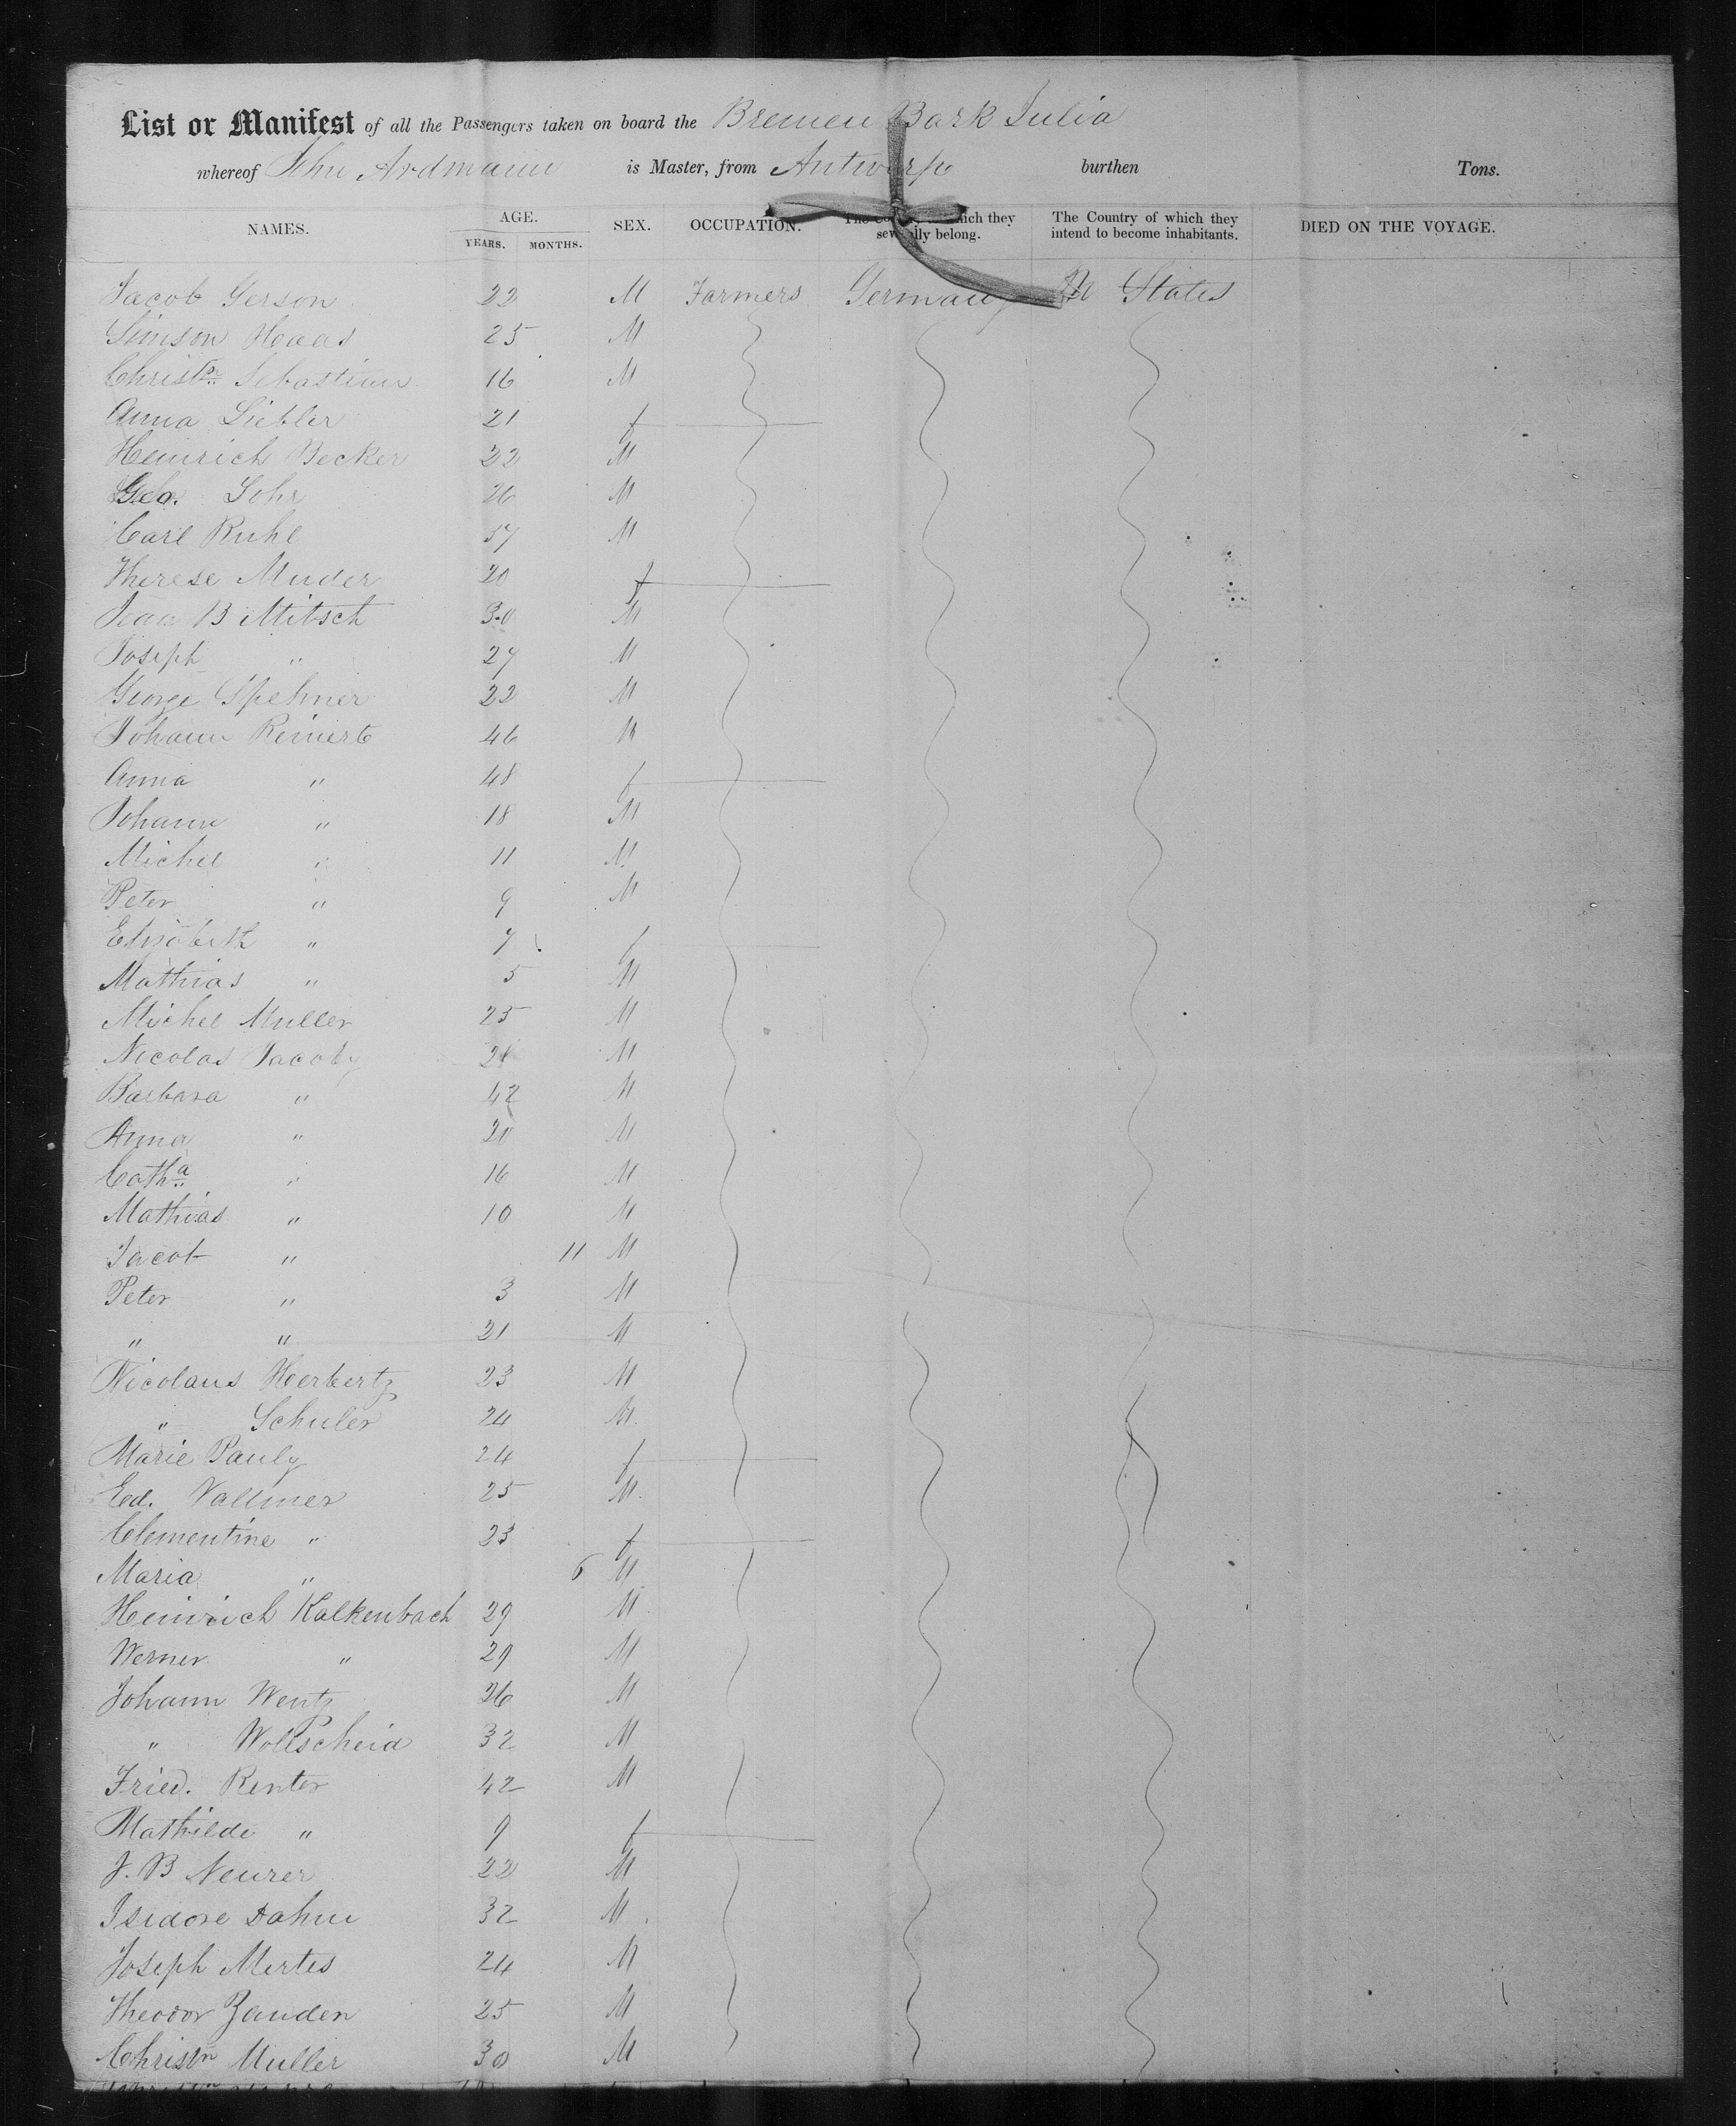 List or Manifest of all the Passengers taken on board the Bremen Bark Julia
whereof John Ardmann is Master, from Antwerp burthen Tons.
NAMES. AGE. YEARS. MONTHS. SEX. OCCUPATION. which they belong. The Country of which they intend to become inhabitants. DIED ON THE VOYAGE.
Jacob Gerson 22 M Farmers Germany States
Simson Haas 25 M
Christn Sebastian 16 M
Anna Liebler 21 f
Heinrich Becker 22 M
Geo. Lohr 26 M
Carl Ruhl 37 M
Therese Muder 20 f
Jean B Mitsch 30 M
Joseph " 27 M
George Spehner 22 M
Johann Reinert 46 M
Anna " 48 f
Johann " 18 M
Michel " 11 M
Peter " 9 M
Elizabeth " 7 f
Mathias " 5 M
Michel Muller 25 M
Nicolas Jacoby M
Barbara " 42 M
Anna " 20 M
Catha " 16 M
Mathias " 10 M
Jacob " 11 M
Peter " 3 M
" " 21 M
Nicolaus Herbertz 23 M
" Schuler 24 M
Marie Pauly 24 f
Ed. Vallmer 25 M
Clementine " 23 f
Maria " 6 M
Heinrich Kalkenbach 29 M
Werner " 29 M
Johann Wentz 26 M
" Wollscheid 32 M
Fried. Renter 42 M
Mathilde " 9 f
J. B Neurer 22 M
Isidore Dahm 32 M
Joseph Mertes 24 M
Theodor Zanden 25 M
Christn Muller 30 M